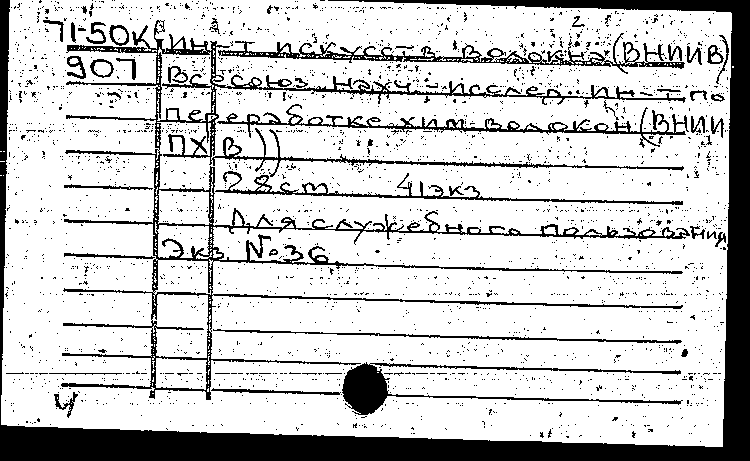 2
71-50К ин-т искусств. волокна (ВНИИВ)
907 Всесоюз. науч.-исслед. ин-т по
переработке хим. волокон (ВНИИ
ПХВ))
28 ст. 41 экз.
Для служебного пользования
Экз. № 36.